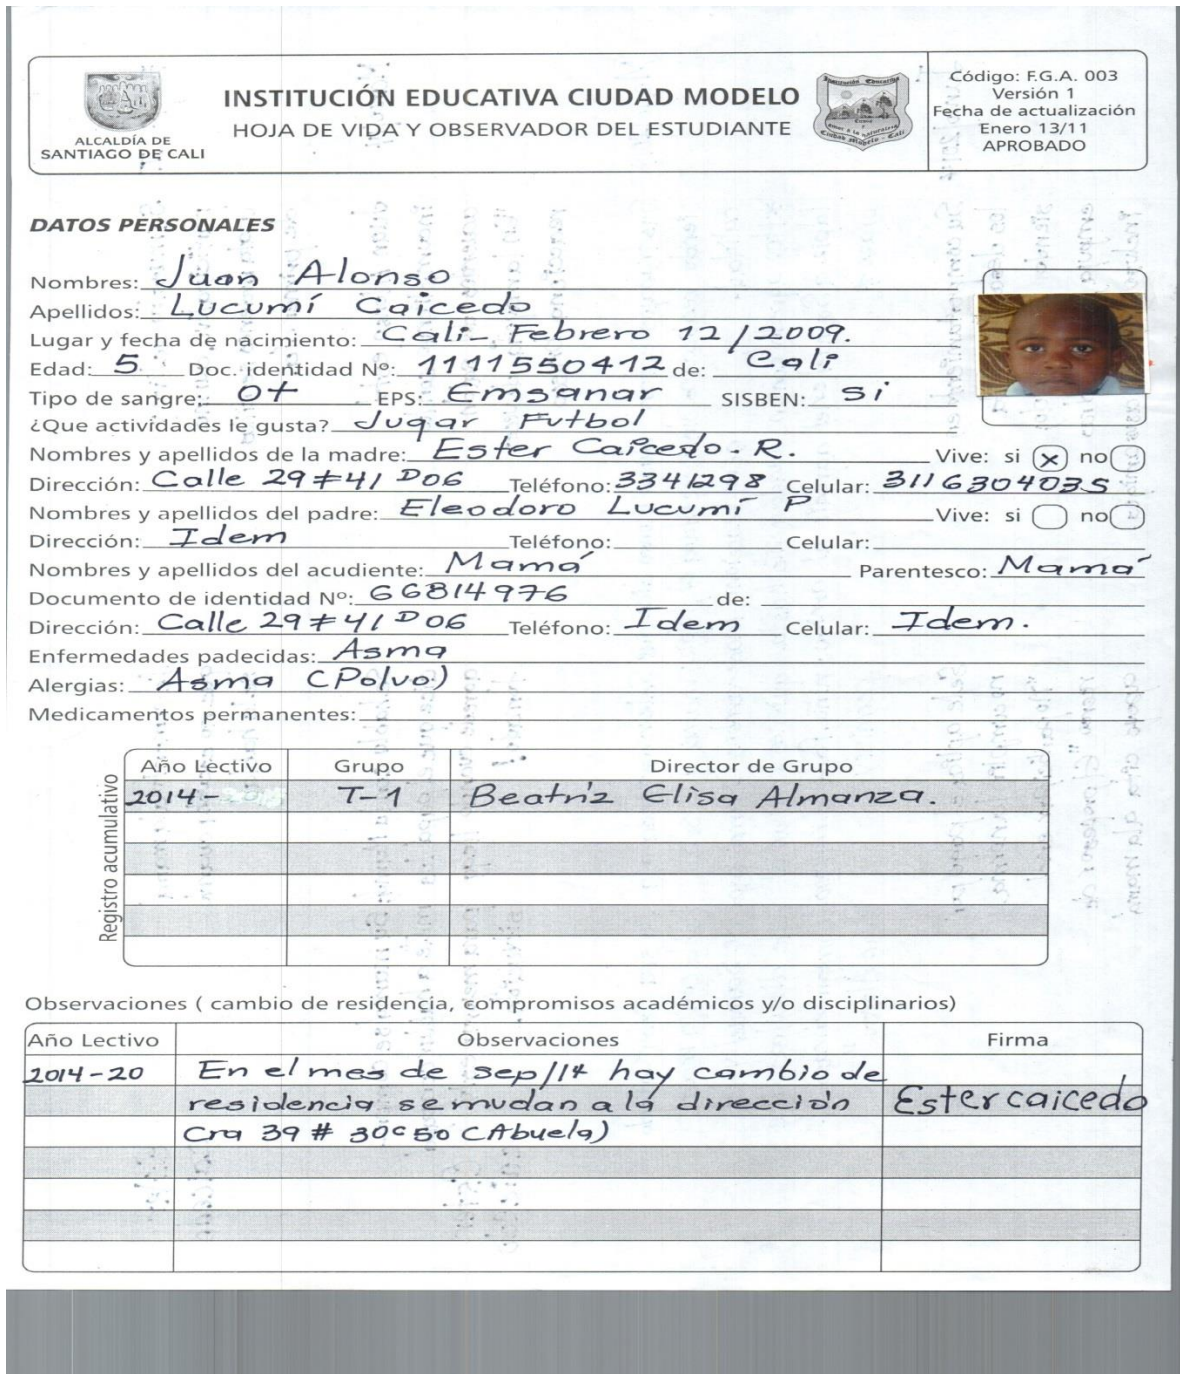 ALCALDÍA DE
SANTIAGO DE CALI
INSTITUCIÓN EDUCATIVA CIUDAD MODELO
HOJA DE VIDA Y OBSERVADOR DEL ESTUDIANTE
Institución Educativa
amor a la naturaleza
Ciudad Modelo - Cali
Código: F.G.A. 003
Versión 1
Fecha de actualización
Enero 13/11
APROBADO
DATOS PERSONALES
Nombres: Juan Alonso
Apellidos: Lucumí Caicedo
Lugar y fecha de nacimiento: Cali- Febrero 12/2009.
Edad: 5 Doc. identidad Nº: 1111550412 de: Cali
Tipo de sangre: O+ EPS: Emsanar SISBEN: Si
¿Que actividades le gusta? Jugar Futbol
Nombres y apellidos de la madre: Ester Caicedo. R. Vive: si x no
Dirección: Calle 29#41 D06 Teléfono: 3341298 Celular: 3116304035
Nombres y apellidos del padre: Eleodoro Lucumí P Vive: si no
Dirección: Idem Teléfono: Celular:
Nombres y apellidos del acudiente: Mamá Parentesco: Mamá
Documento de identidad Nº: 66814976 de:
Dirección: Calle 29#41 D06 Teléfono: Idem Celular: Idem.
Enfermedades padecidas: Asma
Alergias: Asma (Polvo)
Medicamentos permanentes:
Registro acumulativo
Año Lectivo Grupo Director de Grupo
2014- T-1 Beatriz Elisa Almanza.
Observaciones ( cambio de residencia, compromisos académicos y/o disciplinarios)
Año Lectivo Observaciones Firma
2014-20 En el mes de sep/14 hay cambio de
residencia se mudan a la dirección Ester caicedo
Cra 39 # 30c50 (Abuela)